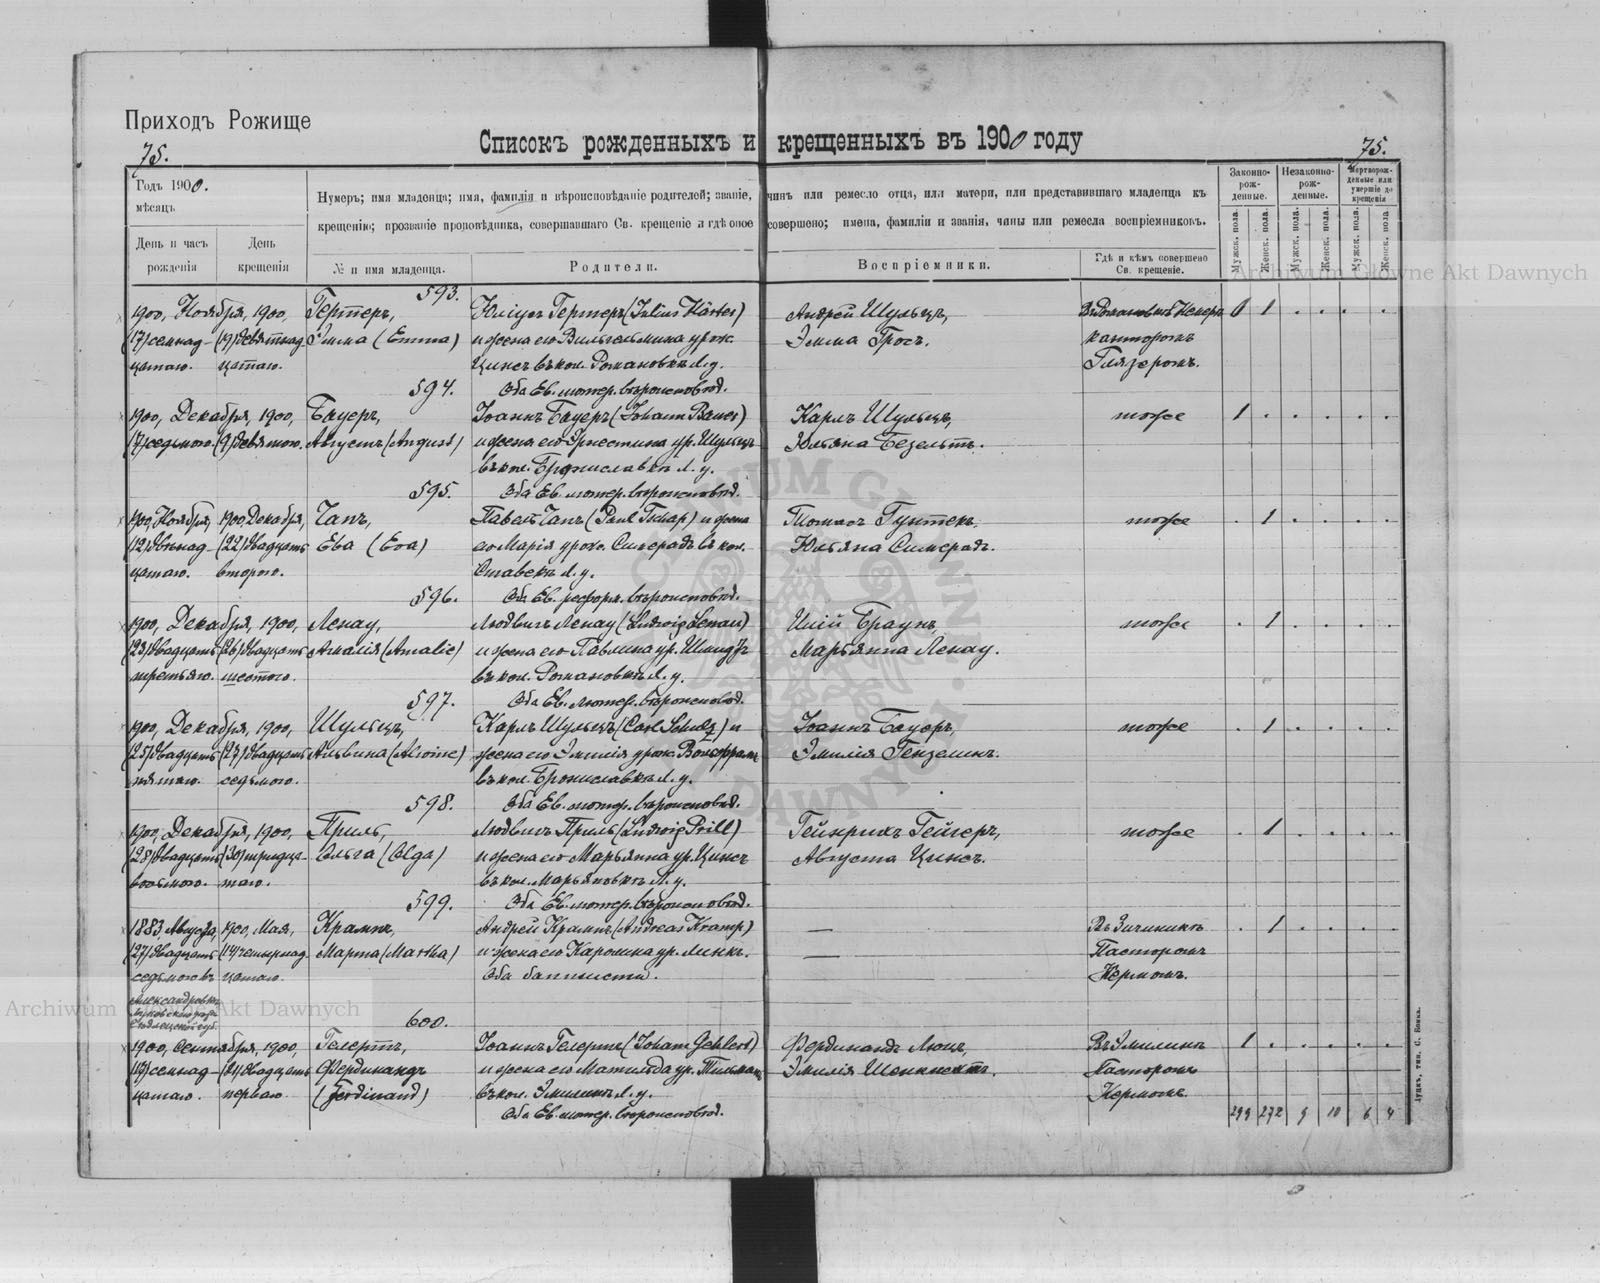 Приходъ Рожище
Списокъ рожденныхъ и крещенныхъ въ 1900 году
75.
75.
Годъ 1900.
мѣсяцъ
День и часъ рожденія
День крещенія
Нумеръ; имя младенца; имя, фамилія и вѣроисповѣданіе родителей; званіе, чинъ или ремесло отца, или матери, или представившаго младенца къ
крещенію; прозваніе проповѣдника, совершавшаго Св. крещеніе и гдѣ оное совершено; имена, фамиліи и званія, чины или ремесла воспріемниковъ.
№ и имя младенца.
Родители.
Воспріемники.
Гдѣ и кѣмъ совершено Св. крещеніе.
Законно-рож-денные.
Незаконно-рож-денные.
Мертворож-денные или умершіе до крещенія
Мужск. пола.
Женск. пола.
Мужск. пола.
Женск. пола.
Мужск. пола.
Женск. пола.
593.
1900, Ноября, 1900, Гертеръ, Юліусъ Гертеръ (Julius Härter) Андрей Шульцъ, 1
(17) семнад- (19) девятнад- Эмма (Emma) и жена его Вильгельмина урож. Эмма Гросъ. канторомъ
цатаго. цатаго. Цинсъ въ кол. Романовкѣ Л. у. Глязеромъ.
594. Оба Ев. лютер. вѣроисповѣд.
1900, Декабря, 1900, Бауеръ, Іоаннъ Бауеръ (Johann Bauer) Карлъ Шульцъ, тоже 1
(7) седьмого. (9) девятого. Августъ (August) и жена его Эрнестина ур. Шульцъ Юльяна Безельтъ.
въ кол. Брониславкѣ Л. у.
595. Оба Ев. лютер. вѣроисповѣд.
1900, Ноября, 1900, Декабря, Чапъ, Павелъ Чапъ (Paul Tschap) и жена тоже 1
(12) двѣнад- (22) двадцать Ева (Eva) его Марія урож. въ кол. Юльяна
цатаго. второго. Ставекъ Л. у.
596. Оба Ев. реформ. вѣроисповѣд.
1900, Декабря, 1900, Ленау, Людвигъ Ленау (Ludwig Lenau) Браунъ, тоже 1
(23) двадцать (26) двадцать Амалія (Amalie) и жена его Павлина ур. Шмидтъ Марьянна Ленау.
третьяго. шестого. въ кол. Романовкѣ Л. у.
597. Оба Ев. лютер. вѣроисповѣд.
1900, Декабря, 1900, Шульцъ, Карлъ Шульцъ (Carl Schulz) и Іоаннъ Бауеръ, тоже 1
(25) двадцать (27) двадцать Альвина (Alwine) жена его Эмилія урож. Вольфрамъ Эмилія Гензелинъ.
пятаго. седьмого. въ кол. Брониславкѣ Л. у.
598. Оба Ев. лютер. вѣроисповѣд.
1900, Декабря, 1900,Приль, Людвигъ Приль (Ludwig Prill) Гейнрихъ Гейгеръ, тоже 1
(28) двадцать (30) тридца- Ольга (Olga) и жена его Марьянна ур. Цинсъ Августа Цинсъ.
восьмого. таго. въ кол. Марьяновкѣ Л. у.
599. Оба Ев. лютер. вѣроисповѣд.
1883, Августа, 1900, Мая, Крампъ, Андрей Крампъ (Andreas Kramp) — 1
(27) двадцать (14) четырнад- Марта (Martha) и жена его Каролина ур. Линкъ. — Пасторомъ
седьмого въ цатаго. Оба баптисты. Кермомъ.
Александровкѣ
600.
1900, Сентября, 1900, Гелертъ, Іоаннъ Гелертъ (Johann Gehlert) Фердинандъ Люцъ, Въ Эмилинѣ 1
(17) семнад- (21) двадцать Фердинандъ и жена его Матильда ур. Тильманъ Эмилія Пасторомъ
цатаго. перваго. (Ferdinand) въ кол. Эмилинѣ Л. у. Кермомъ.
Оба Ев. лютер. вѣроисповѣд.
299 272 9 10 6 4
Луцкъ, тип. С. Бонка.
Archiwum Główne Akt Dawnych
Archiwum Główne Akt Dawnych